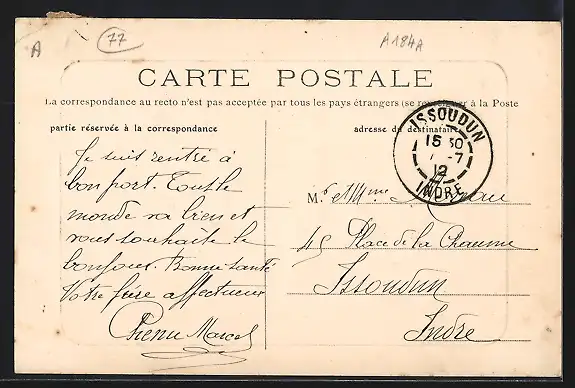 A
77
A184A
CARTE POSTALE
La correspondance au recto n'est pas acceptée par tous les pays étrangers (se renseigner à la Poste
partie réservée à la correspondance
adresse du destinataire
ISSOUDUN
15 30
7
12
INDRE
Je suis rentré à
bon port. Tout le
monde va bien et
vous souhaite le
bonjour. Bonne santé
Votre frère affectueux
Chenu Marcel
M. et Mme
45 Place de la Chaume
Issoudun
Indre